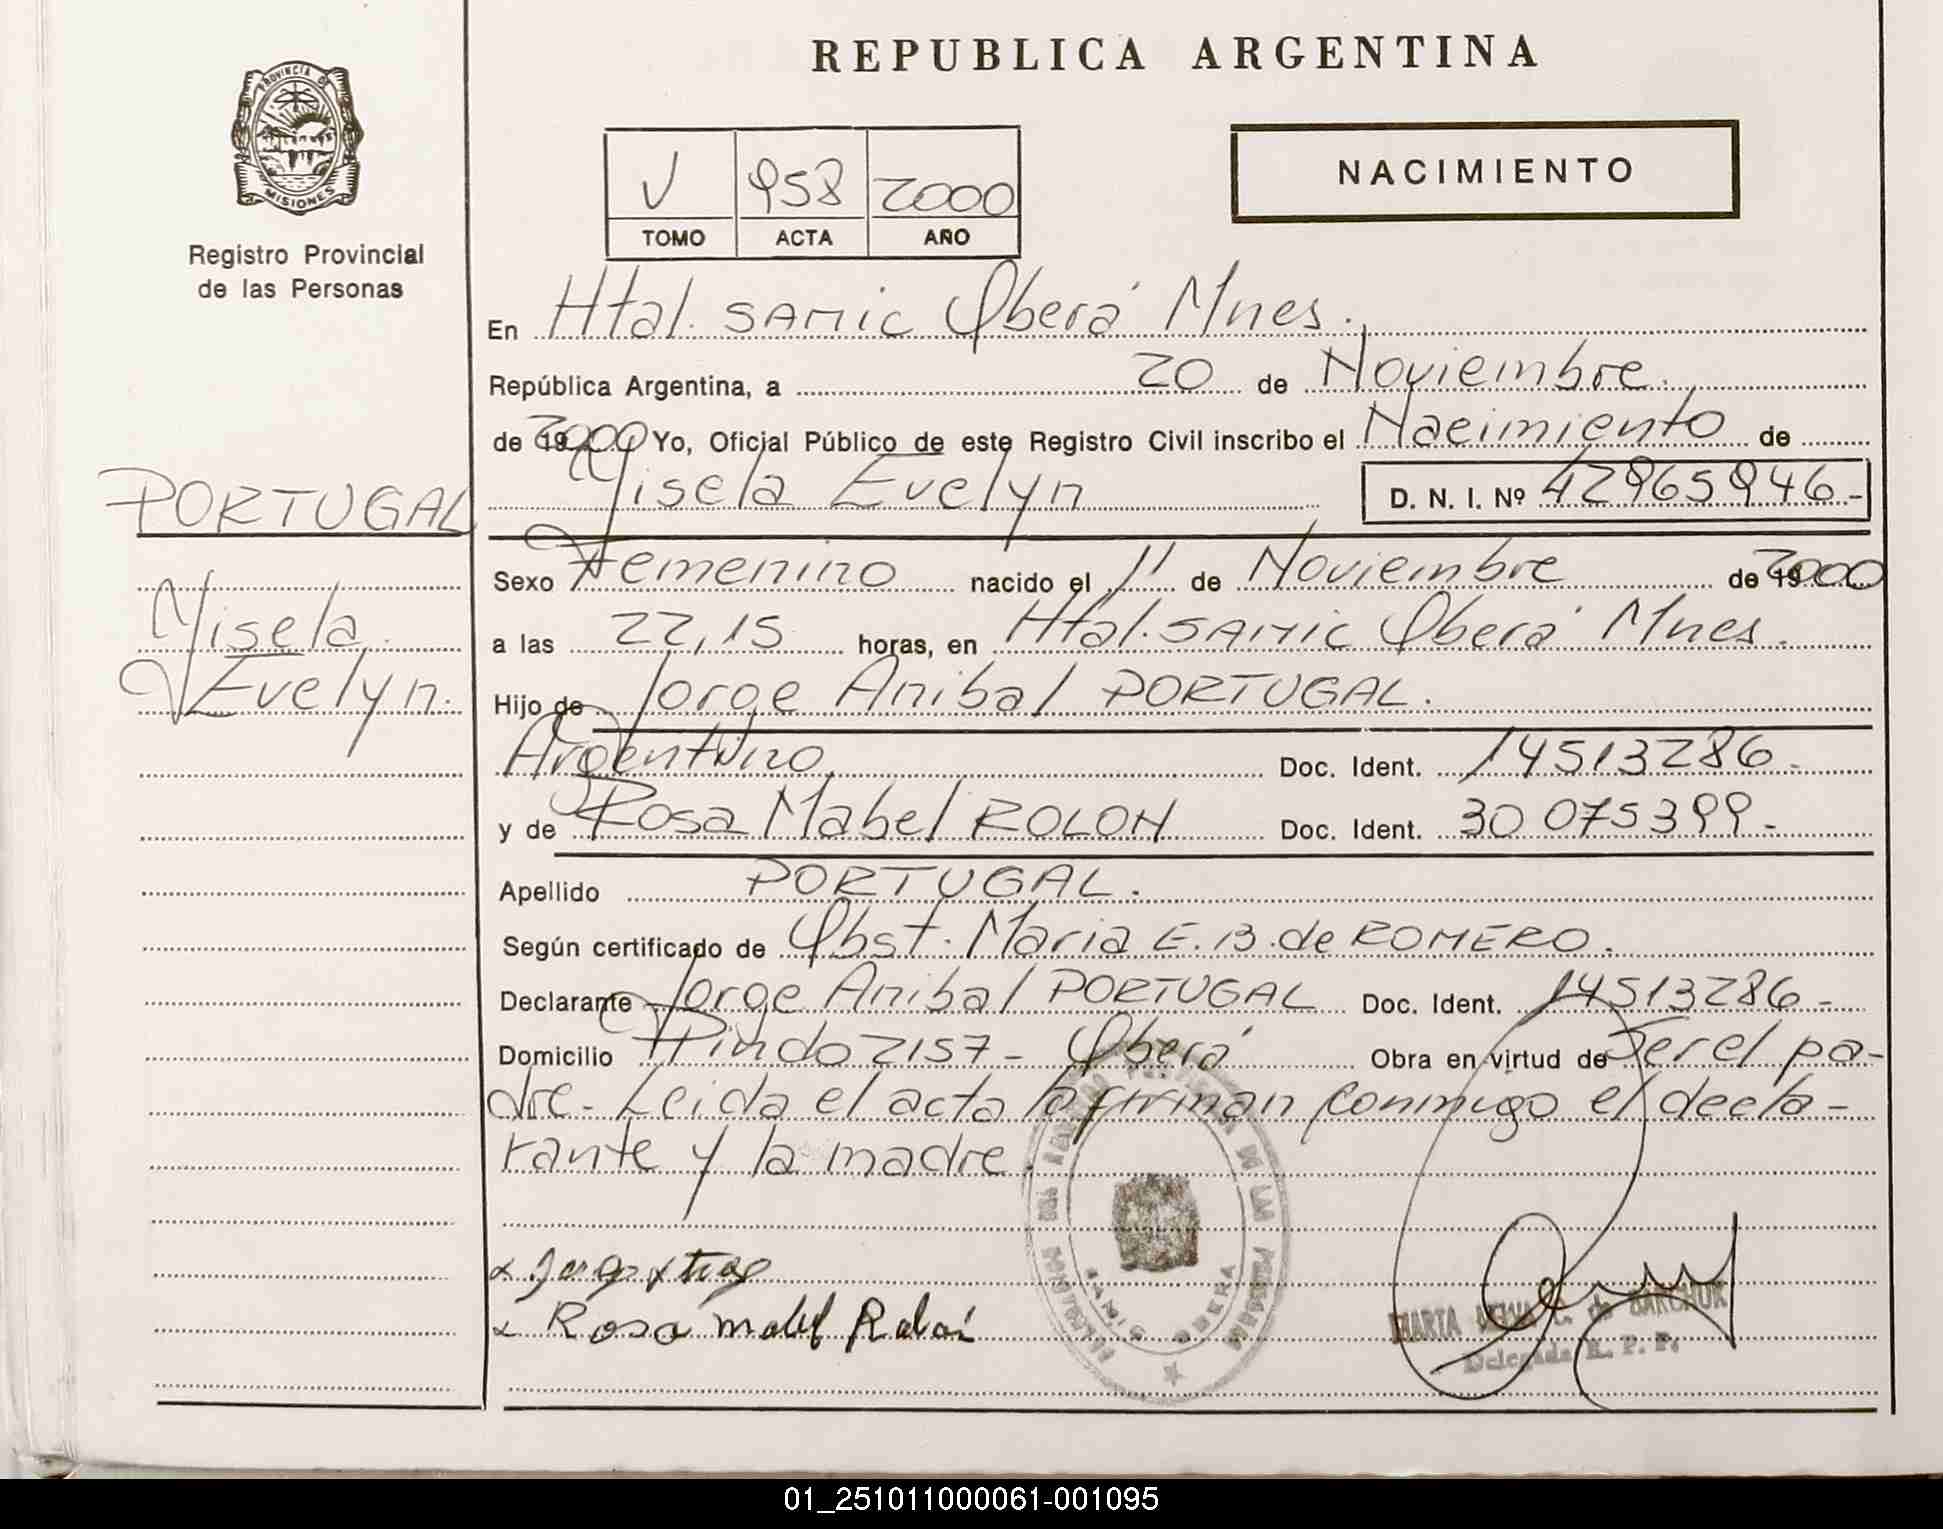 REPUBLICA ARGENTINA
PROVINCIA DE
MISIONES
Registro Provincial
de las Personas
V 958 2000
TOMO ACTA AÑO
NACIMIENTO
En Htal. SAMIC Oberá Mnes.
República Argentina, a 20 de Noviembre
de 2000 Yo, Oficial Público de este Registro Civil inscribo el Nacimiento de
Gisela Evelyn D. N. I. Nº 42965946-
PORTUGAL
Gisela
Evelyn.
Sexo Femenino nacido el 11 de Noviembre de 2000
a las 22,15 horas, en Htal. SAMIC Oberá Mnes.
Hijo de Jorge Anibal PORTUGAL.
Argentino Doc. Ident. 14513286-
y de Rosa Mabel ROLON Doc. Ident. 30 075399-
Apellido PORTUGAL.
Según certificado de Obst. Maria E. B. de ROMERO.
Declarante Jorge Anibal PORTUGAL Doc. Ident. 14513286-
Domicilio Pindo 2157- Oberá Obra en virtud de Ser el pa-
dre- Leida el acta la firman conmigo el decla-
rante y la madre.
x Rosa mabel Rolon
MARTA C. de
Delegada R. P. P.
01_251011000061-001095